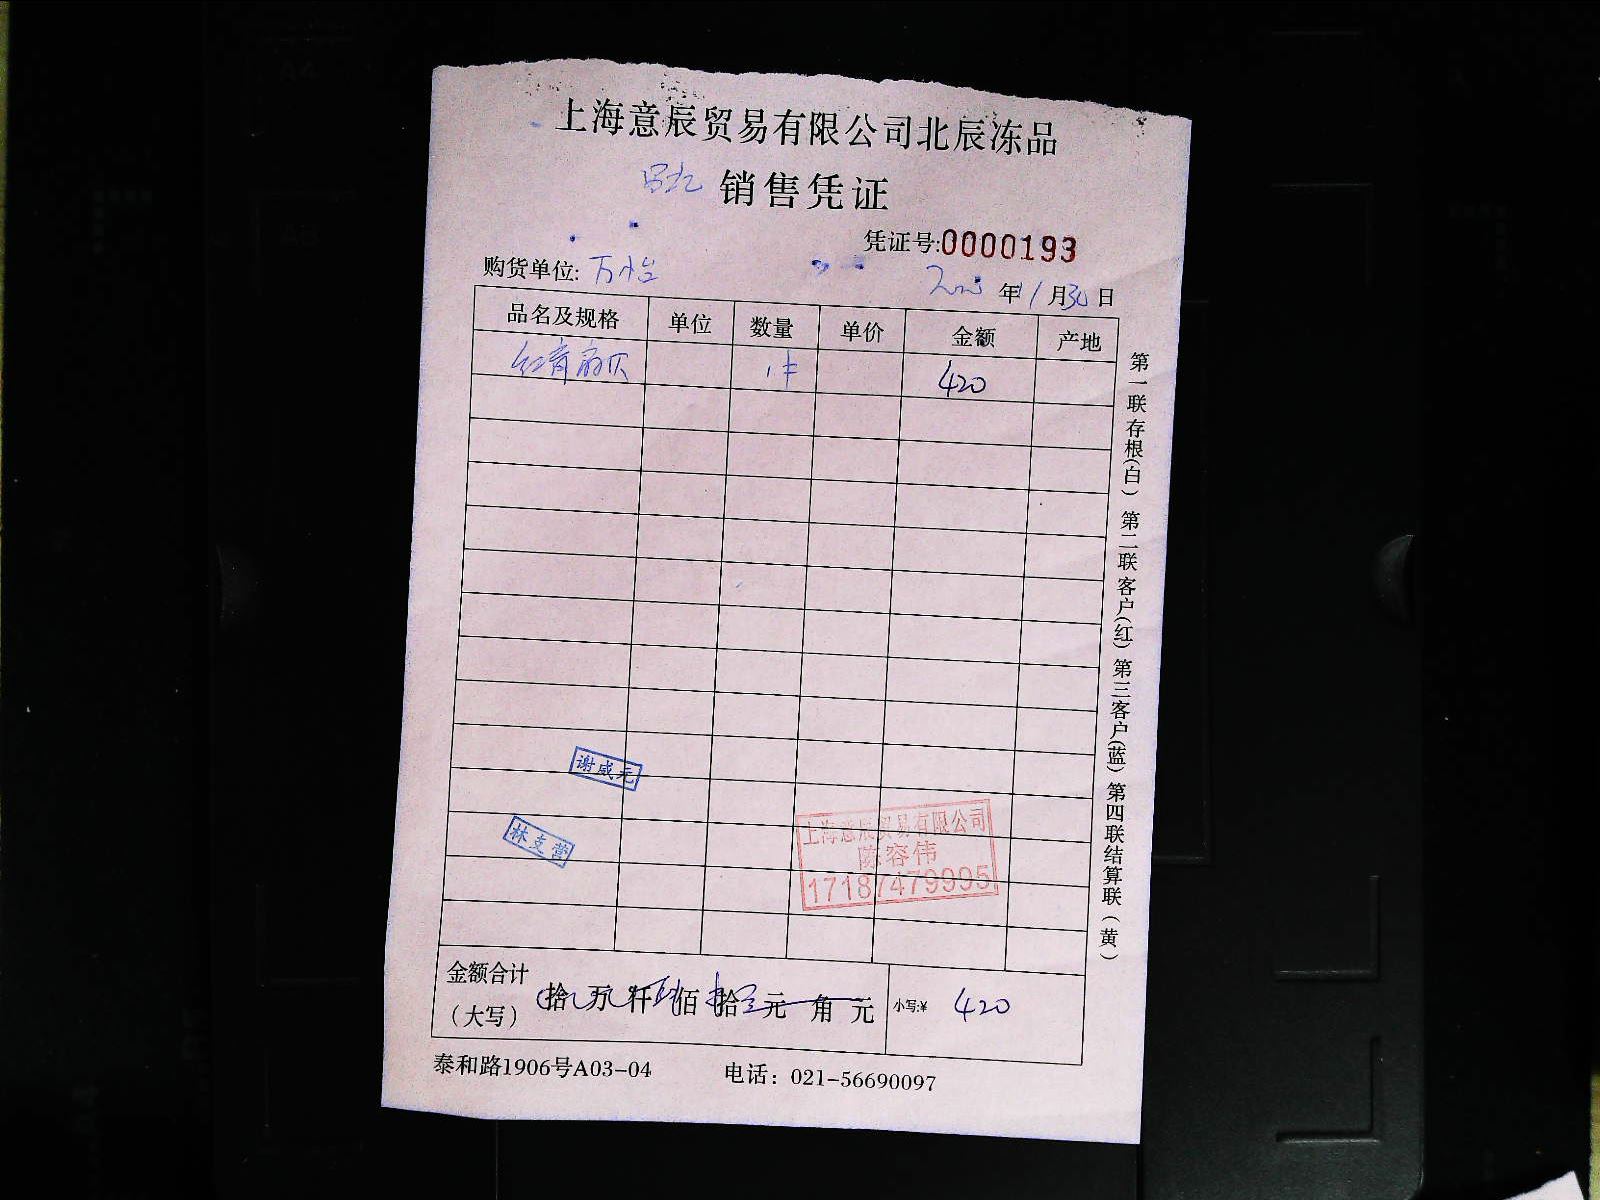 上海意辰贸易有限公司北辰冻品
销售凭证
凭证号:0000193
购货单位: 万怡
年11月30日
品名及规格 单位 数量 单价 金额 产地
红膏扇贝 1件 420
第一联存根(白) 第二联客户(红) 第三客户(蓝) 第四联结算联(黄)
谢咸元
林支营
上海意辰贸易有限公司
陈容伟
17187479995
金额合计
(大写) 拾 万 仟 佰 拾 元 角 元 小写:¥ 420
泰和路1906号A03-04 电话: 021-56690097